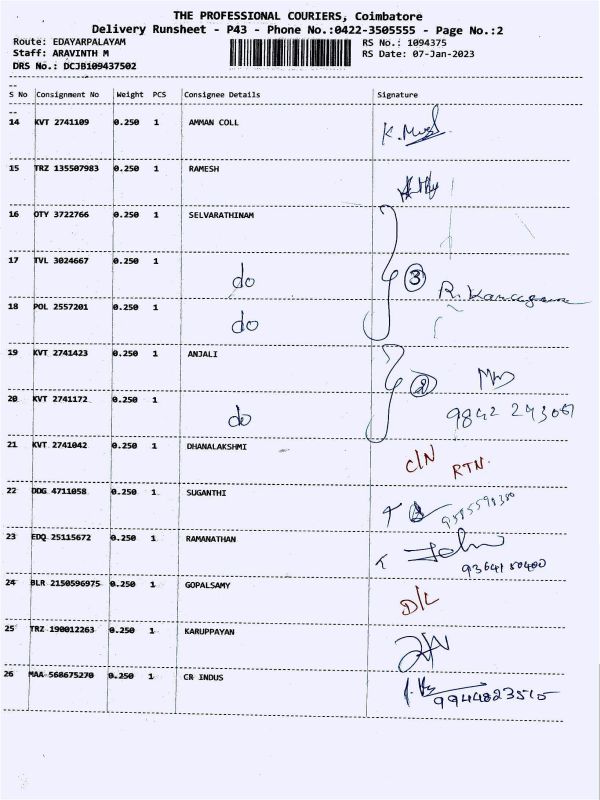 THE PROFESSIONAL COURIERS, Coimbatore
Delivery Runsheet - P43 - Phone No.:0422-3505555 - Page No.:2
Route: EDAYARPALAYAM RS No.: 1094375
Staff: ARAVINTH M RS Date: 07-Jan-2023
DRS No.: DCJB109437502
S No Consignment No Weight PCS Consignee Details Signature
14 KVT 2741109 0.250 1 AMMAN COLL
15 TRZ 135507983 0.250 1 RAMESH
16 OTY 3722766 0.250 1 SELVARATHINAM
17 TVL 3024667 0.250 1 do 3
18 POL 2557201 0.250 1 do
19 KVT 2741423 0.250 1 ANJALI 2
20 KVT 2741172 0.250 1 do
21 KVT 2741042 0.250 1 DHANALAKSHMI C/N RTN.
22 DDG 4711058 0.250 1 SUGANTHI
23 EDQ 25115672 0.250 1 RAMANATHAN
24 BLR 2150596975 0.250 1 GOPALSAMY D/L
25 TRZ 190012263 0.250 1 KARUPPAYAN
26 MAA 568675270 0.250 1 CR INDUS 9944823515